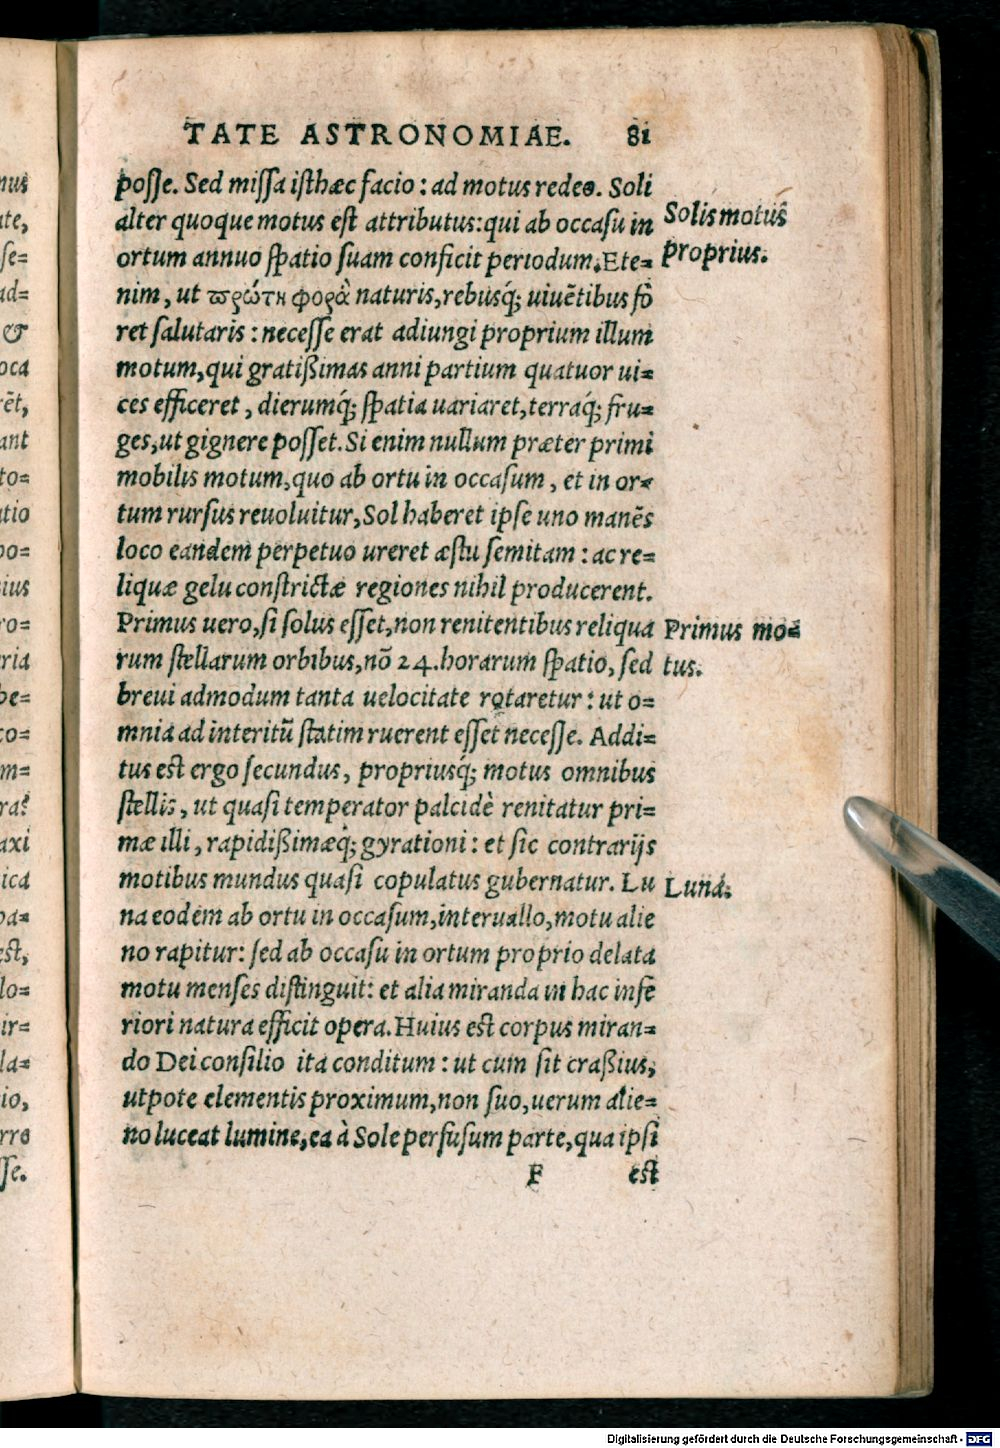 TATE ASTRONOMIAE. 81
posse. Sed missa isthæc facio: ad motus redeo. Soli
alter quoque motus est attributus: qui ab occasu in
ortum annuo spatio suam conficit periodum. Ete=
nim, ut πρώτη φορὰ naturis, rebusq́; uiuētibus fo
ret salutaris: necesse erat adiungi proprium illum
motum, qui gratißimas anni partium quatuor ui=
ces efficeret, dierumq́; spatia uariaret, terraq́; fru=
ges, ut gignere posset. Si enim nullum præter primi
mobilis motum, quo ab ortu in occasum, et in or=
tum rursus reuoluitur, Sol haberet ipse uno manēs
loco eandem perpetuo ureret æstu semitam: ac re=
liquæ gelu constrictæ regiones nihil producerent.
Primus uero, si solus esset, non renitentibus reliqua
rum stellarum orbibus, nō 24. horarum spatio, sed
breui admodum tanta uelocitate rotaretur: ut o=
mnia ad interitū statim ruerent esset necesse. Addi=
tus est ergo secundus, propriusq́; motus omnibus
stellis, ut quasi temperator palcidè renitatur pri=
mæ illi, rapidißimæq́; gyrationi: et sic contrarijs
motibus mundus quasi copulatus gubernatur. Lu
na eodem ab ortu in occasum, interuallo, motu alie
no rapitur: sed ab occasu in ortum proprio delata
motu menses distinguit: et alia miranda in hac infe
riori natura efficit opera. Huius est corpus miran=
do Dei consilio ita conditum: ut cum sit craßius,
utpote elementis proximum, non suo, uerum alie=
no luceat lumine, ea à Sole perfusum parte, qua ipsi
F est
Solis motus
proprius.
Primus mo=
tus.
Luna.
nus
te,
se=
ad=
&
oca
rēt,
ant
to=
tio
po=
ius
ro=
ria
be=
co=
m=
ra?
axi
ica
pa=
est,
lo=
ir=
la=
io,
rro
sse.
Digitalisierung gefördert durch die Deutsche Forschungsgemeinschaft - DFG